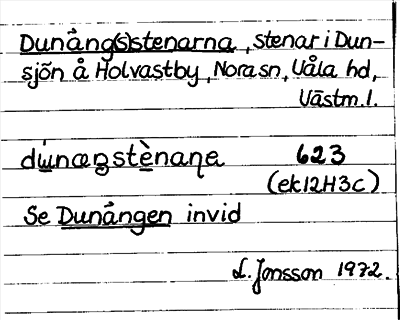 Dunång(s)stenarna, stenar i Dun-
sjön å Holvastby, Nora sn, Våla hd,
Västm. l.
dɯ́næŋstènaɳa 623
(ek 12H3c)
Se Dunången invid
L. Jonsson 1972.